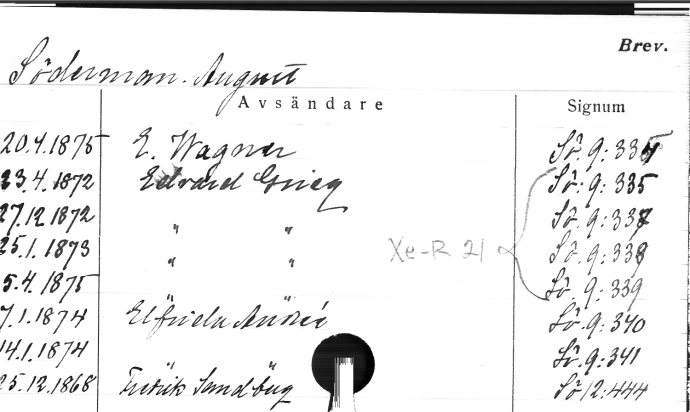 Brev.
Söderman. August
Avsändare Signum
20.4.1875 E. Wagner Sö. 9:334
23.4.1872 Edvard Grieg Sö. 9:335
27.12 1872 " " Sö. 9:337
25.1.1873 " " Xe-R 21 Sö. 9:338
5.4.1875 Sö. 9:339
7.1.1874 Elfrida Andrée Sö. 9:340
14.1.1874 Sö. 9:341
25.12.1868 Fredrik Sandberg Sö 12:444